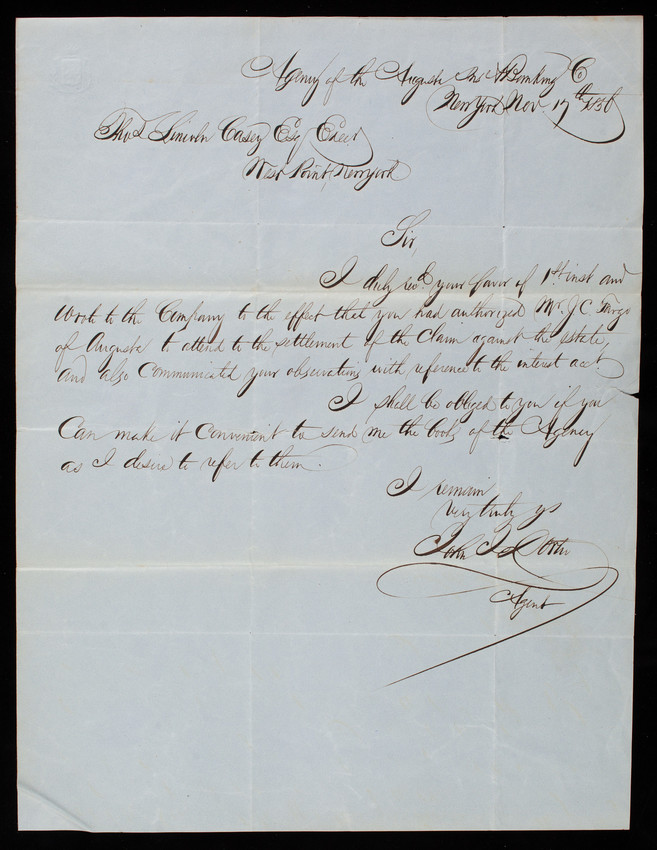 Agency of the Augusta Ins & Banking Co
New York Nov. 17th 1856
Thos Lincoln Casey Esq Exect
West Point, New York
Sir,
I duly recd. your favor of 1st inst and
wrote to the Company to the effect that you had authorized Mr. J. C. Fargo
of Augusta to attend to the settlement of the claim against the estate,
and also communicated your observations with reference to the interest act.
I shall be obliged to you if you
can make it convenient to send me the books of the Agency
as I desire to refer to them.
I remain
very truly ys
John J
Agent